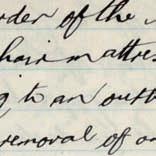 order of the
hair mattress
g to an outb
removal of an